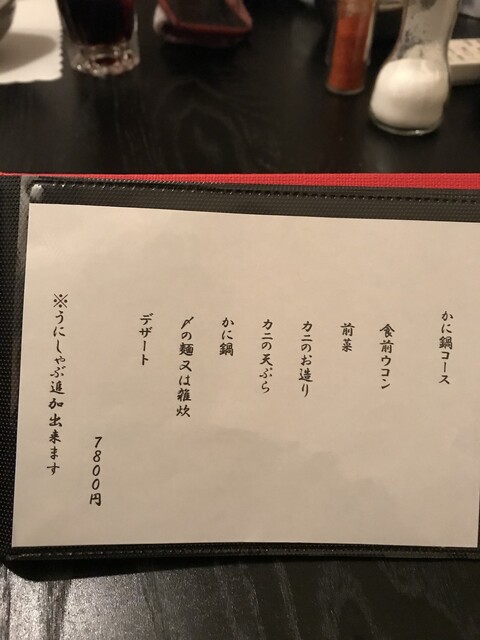 かに鍋コース
食前ウコン
前菜
カニのお造り
カニの天ぷら
かに鍋
〆の麺又は雑炊
デザート
7800円
※うにしゃぶ追加出来ます